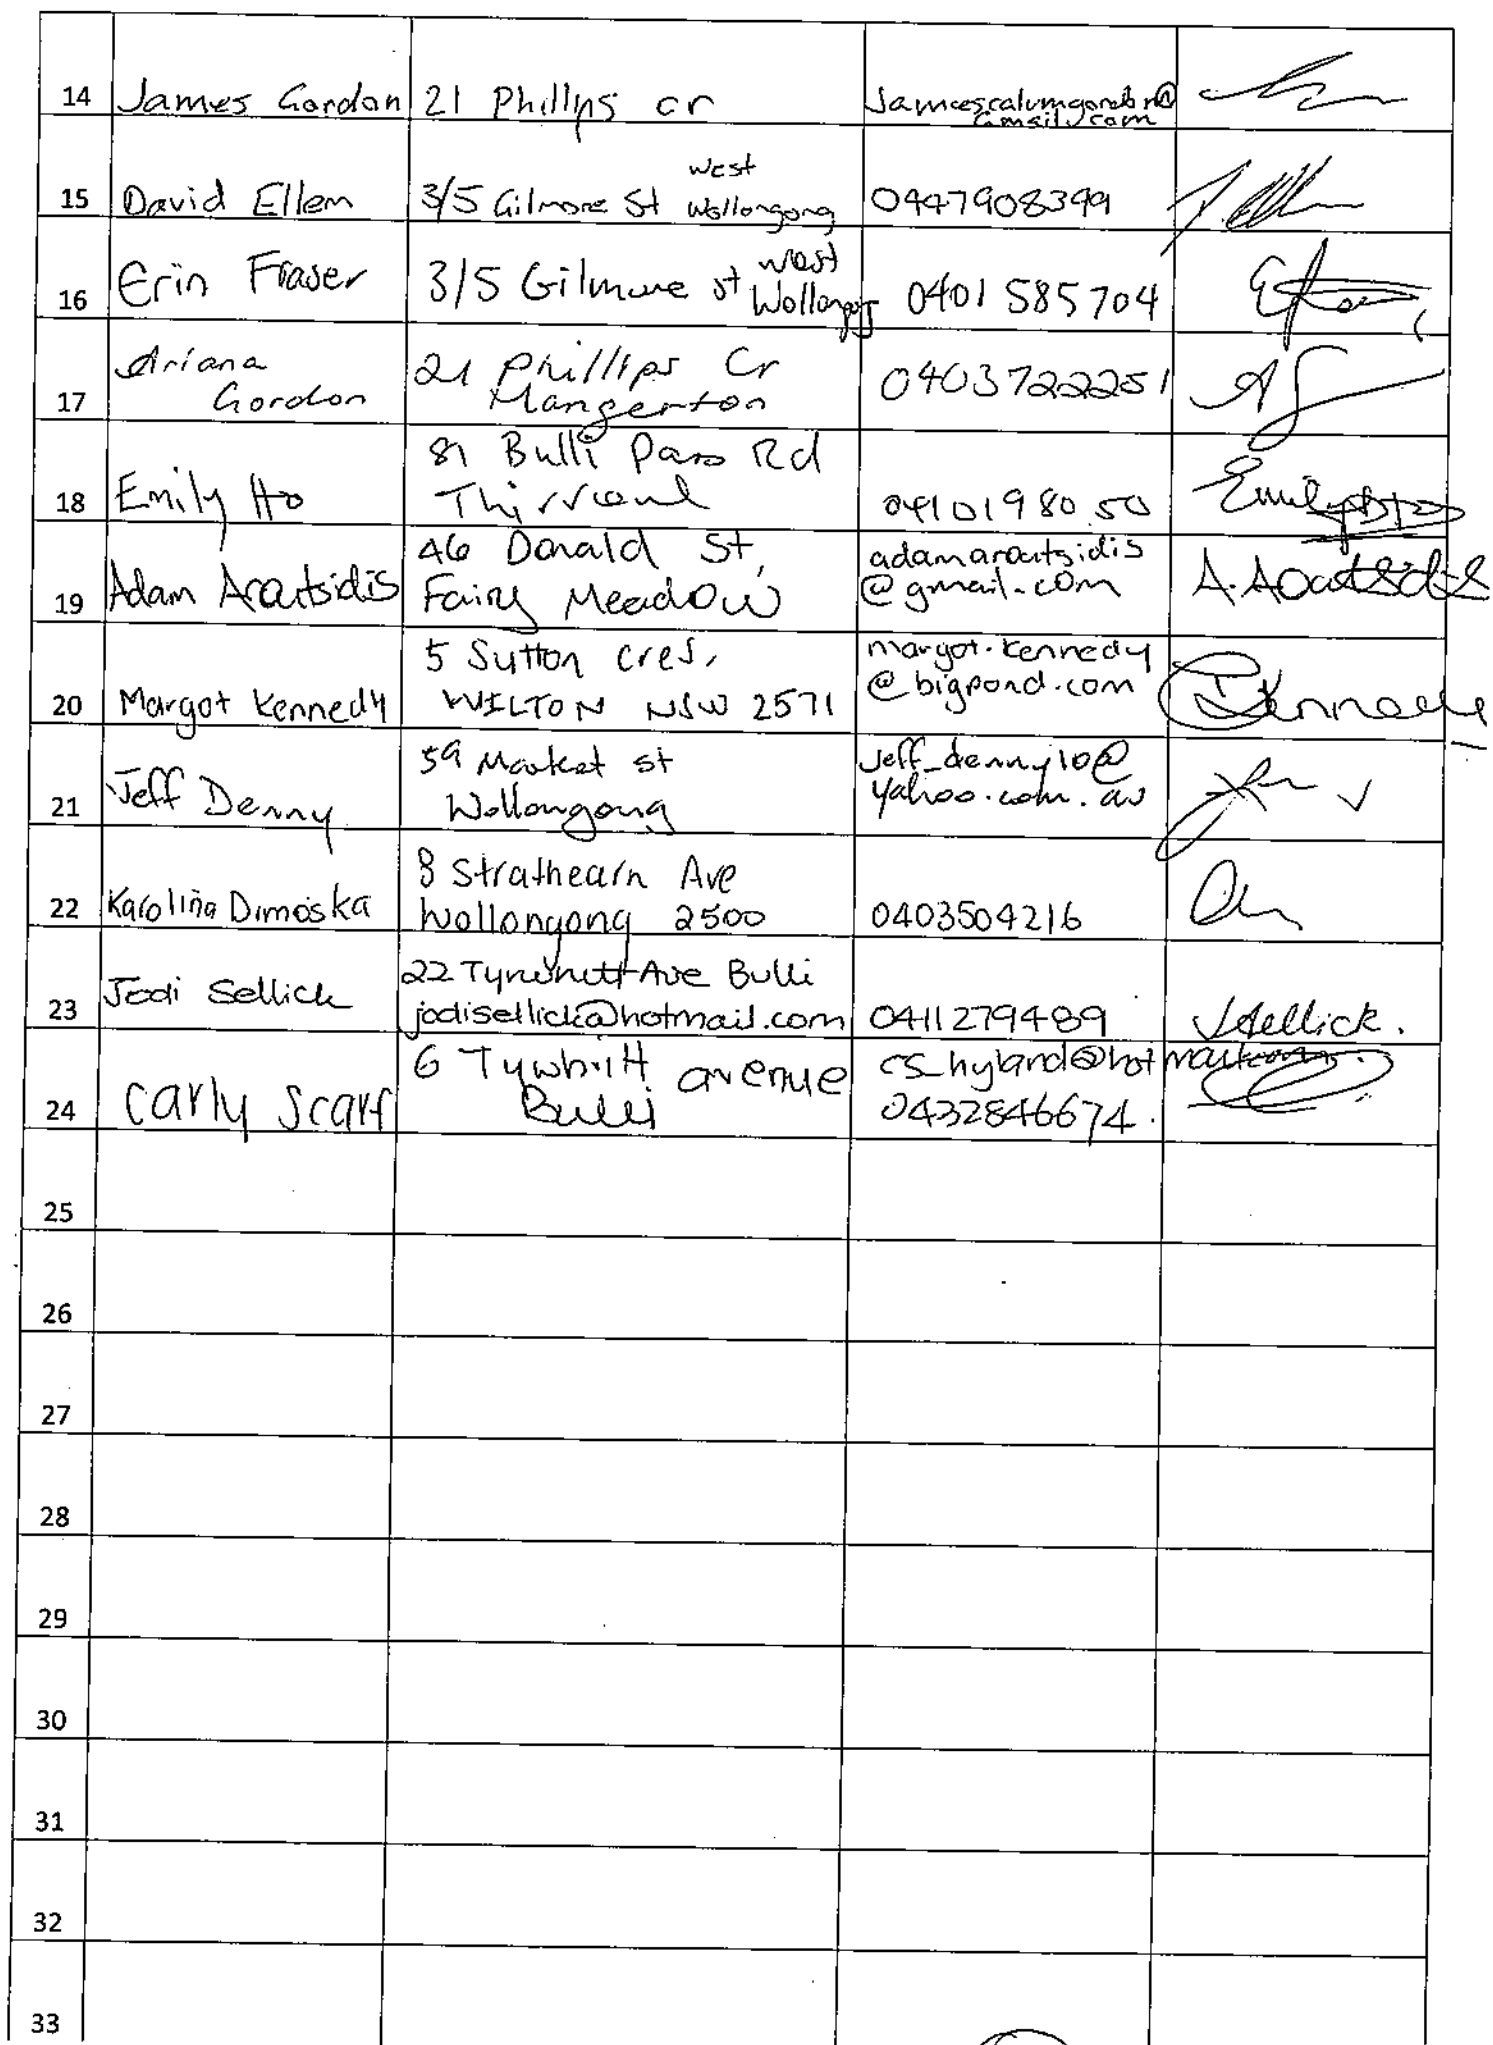 14 James Gordon 21 Phillips cr
15 David Ellem 3/5 Gilmore St West Wollongong 0447908399
16 Erin Fraser 3/5 Gilmore st West Wollongong 0401 585704
17 Ariana Gordon 21 Phillips Cr Mangerton 0403722251
18 Emily Ho 81 Bulli Pass Rd Thirroul 0410198050
19 Adam Aroutsidis 46 Donald St, Fairy Meadow adamaroutsidis@gmail.com
20 Margot Kennedy 5 Sutton Cres, WILTON NSW 2571 margot.kennedy@bigpond.com
21 Jeff Denny 59 Market st Wollongong Jeff_denny10@yahoo.com.au
22 Karolina Dimoska 8 Strathearn Ave Wollongong 2500 0403504216
23 Jodi Sellick 22 Ave Bulli jodisellick@hotmail.com 0411279489 JSellick.
24 Carly Scarf 6 avenue Bulli cs_hyland@hotmail.com 0432846674.
25
26
27
28
29
30
31
32
33